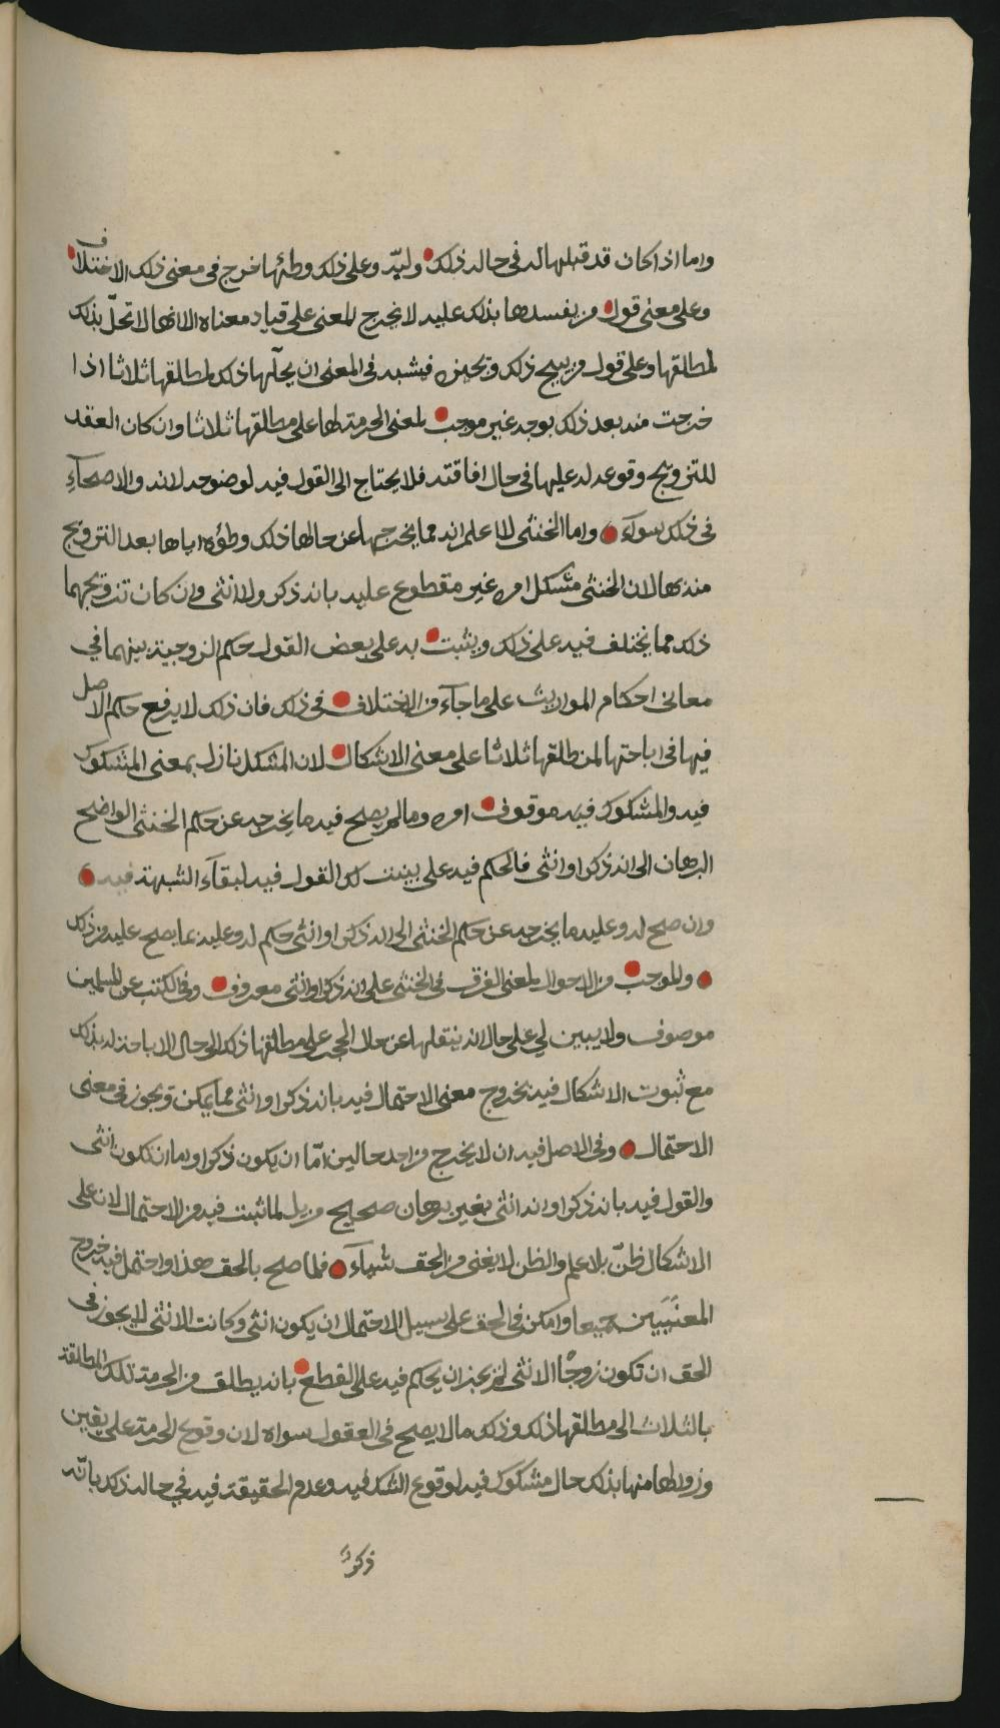 واما اذا كان قد قبلها له في حال ذلك وليّه وعلى ذلك وطئها خرج في معنى ذلك الاختلاف
وعلى معنى قول من يفسدها بذلك عليه لا يخرج المعنى على قياد معناه الا انها لا تحلّ بذلك
لمطلقها وعلى قول من يبيح ذلك ويجيزه فيشبه في المعنى ان يحلّها ذلك لمطلقها ثلاثا اذا
خرجت منه بعد ذلك بوجه غير موجب لمعنى الحرمة لها على مطلقها ثلاثا وان كان العقد
للتزويج وقوعه له عليها في حال افاقته فلا يحتاج الى القول فيه لوضوحه لانه والاصحآء
في ذلك سوآء واما الخنثى لا اعلم انه مما يخرجها عن حالها ذلك وطؤه اياها بعد التزويج
منه بها لان الخنثى مشكل امره غير مقطوع عليه بانه ذكر ولا انثى وان كان تزويجهما
ذلك مما يختلف فيه على ذلك ويثبت به على بعض القول حكم الزوجية بينهما في
معاني احكام المواريث على ما جآء من الاختلاف في ذلك فان ذلك لا يرفع حكم الاصل
فيها في اباحتها لمن طلقها ثلاثا على معنى الاشكال لان المشكل نازل بمعنى المشكوك
فيه والمشكوك فيه موقوف امره وما لم يصح فيه ما يخرجه عن حكم الخنثى الواضح
البرهان الى انه ذكر او انثى فالحكم فيه على بينت لك القول فيه لبقآء الشبهة فيه
وان صح له وعليه ما يخرجه عن حكم الخنثى الى انه ذكر او انثى حكم له وعليه بما يصح عليه من ذلك
والموجب من الاحوال لمعنى الفرق في الخنثى على انه ذكر او انثى معروف وفي الكتب عن المسلمين
موصوف ولا يبين لي على حال انه ينقلها عن حال الحجر على مطلقها ذلك الى حال الاباحة له بذلك
مع ثبوت الاشكال فيه بخروج معنى الاحتمال فيه بانه ذكر او انثى مما يمكن ويجوز في معنى
الاحتمال وفي الاصل فيه ان لا يخرج من احد حالين امّا ان يكون ذكرا واما ان تكون انثى
والقول فيه بانه ذكر او انه انثى بغير برهان صحيح مزيل لما ثبت فيه من الاحتمال لانه على
الاشكال ظنّ بلا علم والظن لا يغني من الحق شيئاء فلما صح بالحق هذا واحتمل فيه خروج
المعنيين جميعا وامكن في الحق على سبيل الاحتمال ان يكون انثى وكانت الانثى لا يجوز في
الحق ان تكون زوجًا لانثى لم يجز ان يحكم فيه على القطع بانه يطلق من الحرمة تلك المطلقة
بالثلاث الى مطلقها ذلك وذلك ما لا يصح في العقول سواه لان وقوع الحرمة على يقين
وزوالها منها بذلك حال مشكوك فيه لوقوع الشك فيه وعدم الحقيقة فيه في حاله ذلك بانّه
ذكرٌ